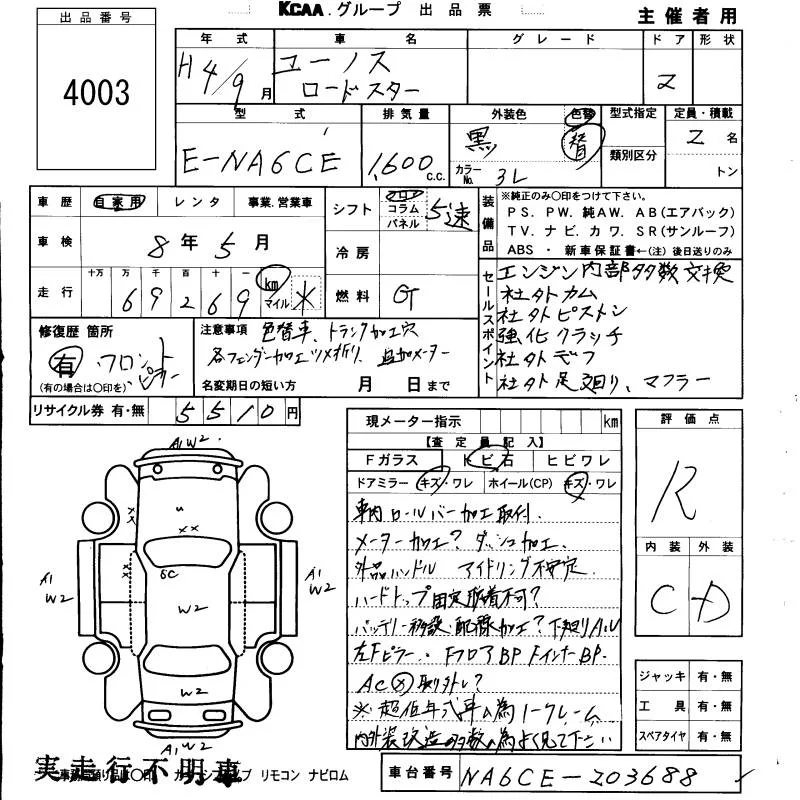 KCAA.グループ 出品票
主催者用
出品番号
4003
年式 車名 グレード ドア 形状
H4/9月 ユーノス ロードスター 2
型式 排気量 外装色 色替 型式指定 定員・積載
E-NA6CE 1,600 c.c. 黒 替 類別区分 2名
カラーNo. 3L トン
車歴 自家用 レンタ 事業.営業車
シフト フロア コラム パネル 5速
車検 8年5月
冷房
走行 十万 万 千 百 十 一
69269 km マイル ※
燃料 G
装備品
※純正のみ○印をつけて下さい。
PS. PW. 純AW. AB(エアバック)
TV. ナビ. カワ. SR(サンルーフ)
ABS ・ 新車保証書←(注) 後日送りのみ
セールスポイント
エンジン内部多数交換
社外カム
社外ピストン
強化クラッチ
社外デフ
社外足廻り、マフラー
修復歴 箇所
有 フロント ピラー
(有の場合は○印を)
注意事項 色替車、トランク加工穴
各フェンダー加工ツメ折り、追加メーター
名変期日の短い方 月 日まで
リサイクル券 有・無 5510円
現メーター指示 km
【査定員記入】
Fガラス トビ石 ヒビワレ
ドアミラー キズ・ワレ ホイール(CP) キズ・ワレ
車内ロールバー加工取付.
メーター加工? ダッシュ加工.
外品ハンドル アイドリング不安定.
ハードトップ固定 脱着不可?
バッテリー移設・配線加工? 下廻りA.U
左Fピラー・FフロアBP FインナーBP.
AC× 取り外し?
※超低年式車の為ノークレーム
内外装改造多数の為よく見て下さい
評価点
R
内装 外装
C D
ジャッキ 有・無
工具 有・無
スペアタイヤ 有・無
A1 W2
U
XX
XX
XX
6C
A1 W2
W2
A1 W2
W2
A1 W2
実走行不明車
リモコン ナビロム
車台番号 NA6CE-203688